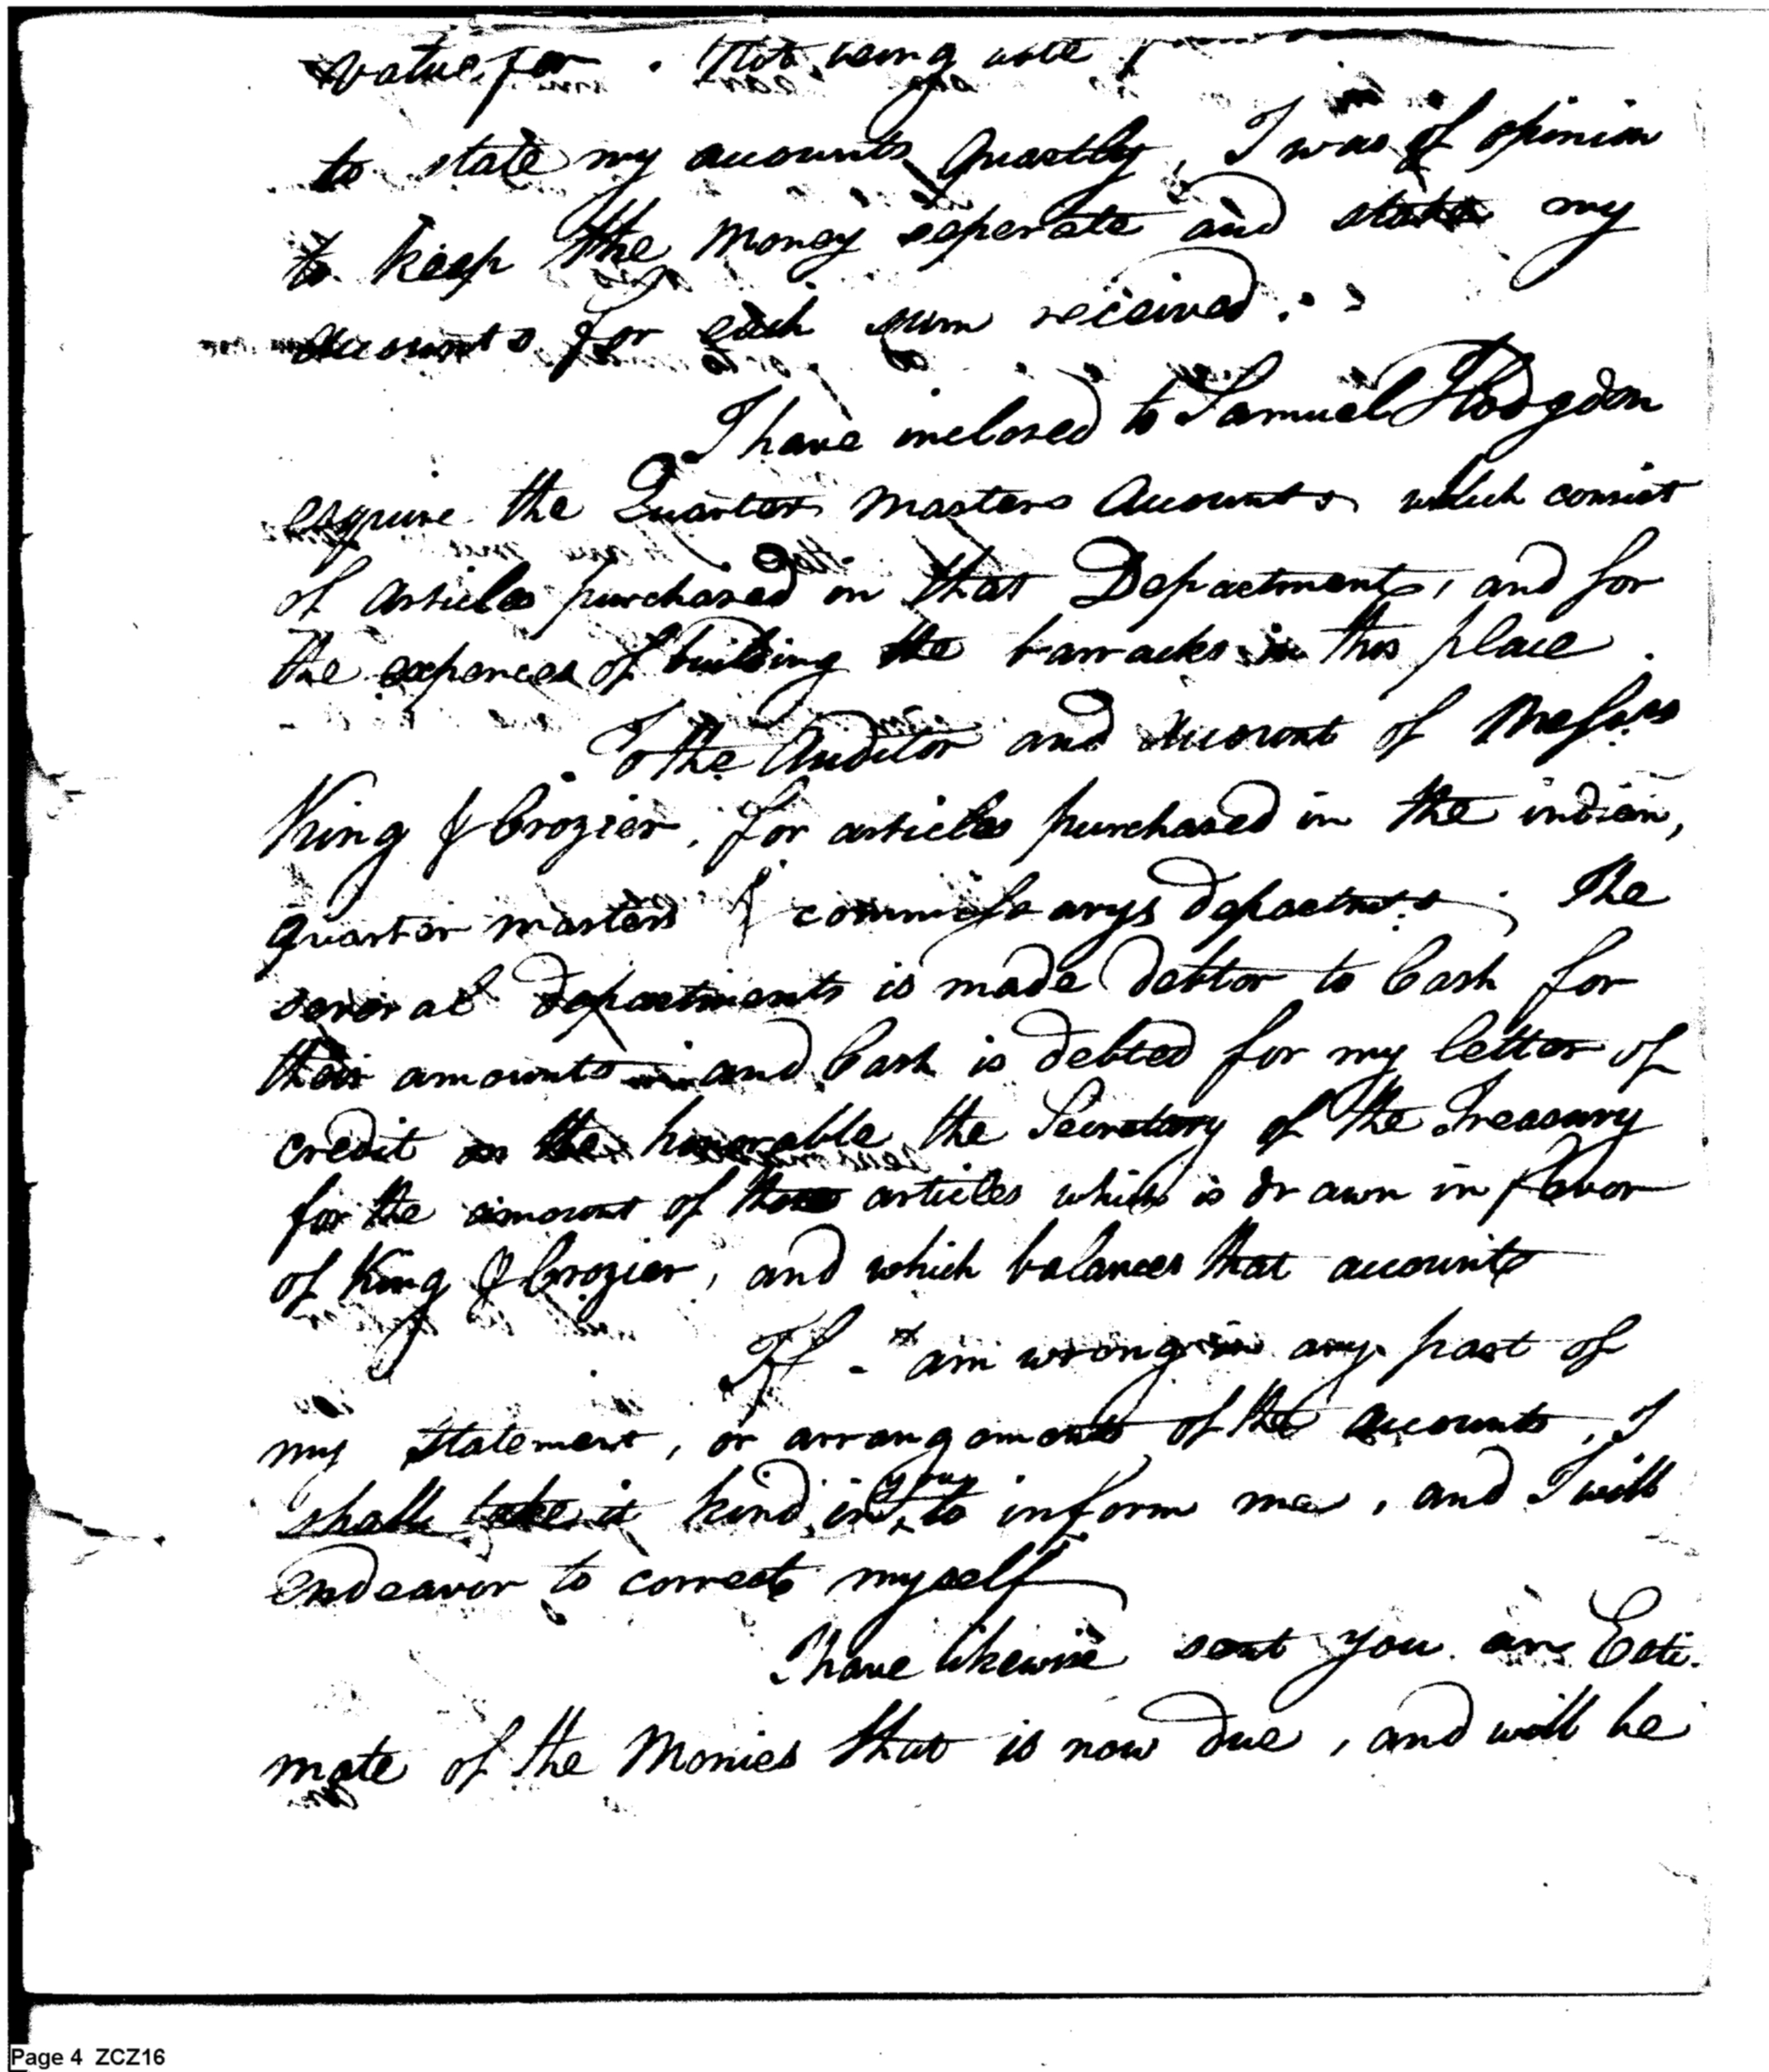 value for . Not being able
to state my accounts quartly, I was of opinion
to keep the money seperate and state my
accounts for each sum received.
I have inclosed to Samuel Hodgdon
esquire the Quarter Masters Accounts which consist
of articles purchased in that Department, and for
the expences of building the barracks in this place.
To the Auditor and Account of Messrs
King & Crozier, for articles purchased in the indian,
quarter masters & commissarys departmts. The
several departments is made debtor to Cash for
their amounts and Cash is debted for my letter of
credit on the honorable the Secretary of the Treasury
for the amount of those articles which is drawn in favor
of King & Crozier, and which balances that account
If I am wrong in any part of
my Statement, or arrangements of the accounts, I
shall take it kind in you to inform me, and I will
endeavor to correct myself
I have likewise sent you an Esti-
mate of the Monies that is now due, and will be
Page 4 ZCZ16